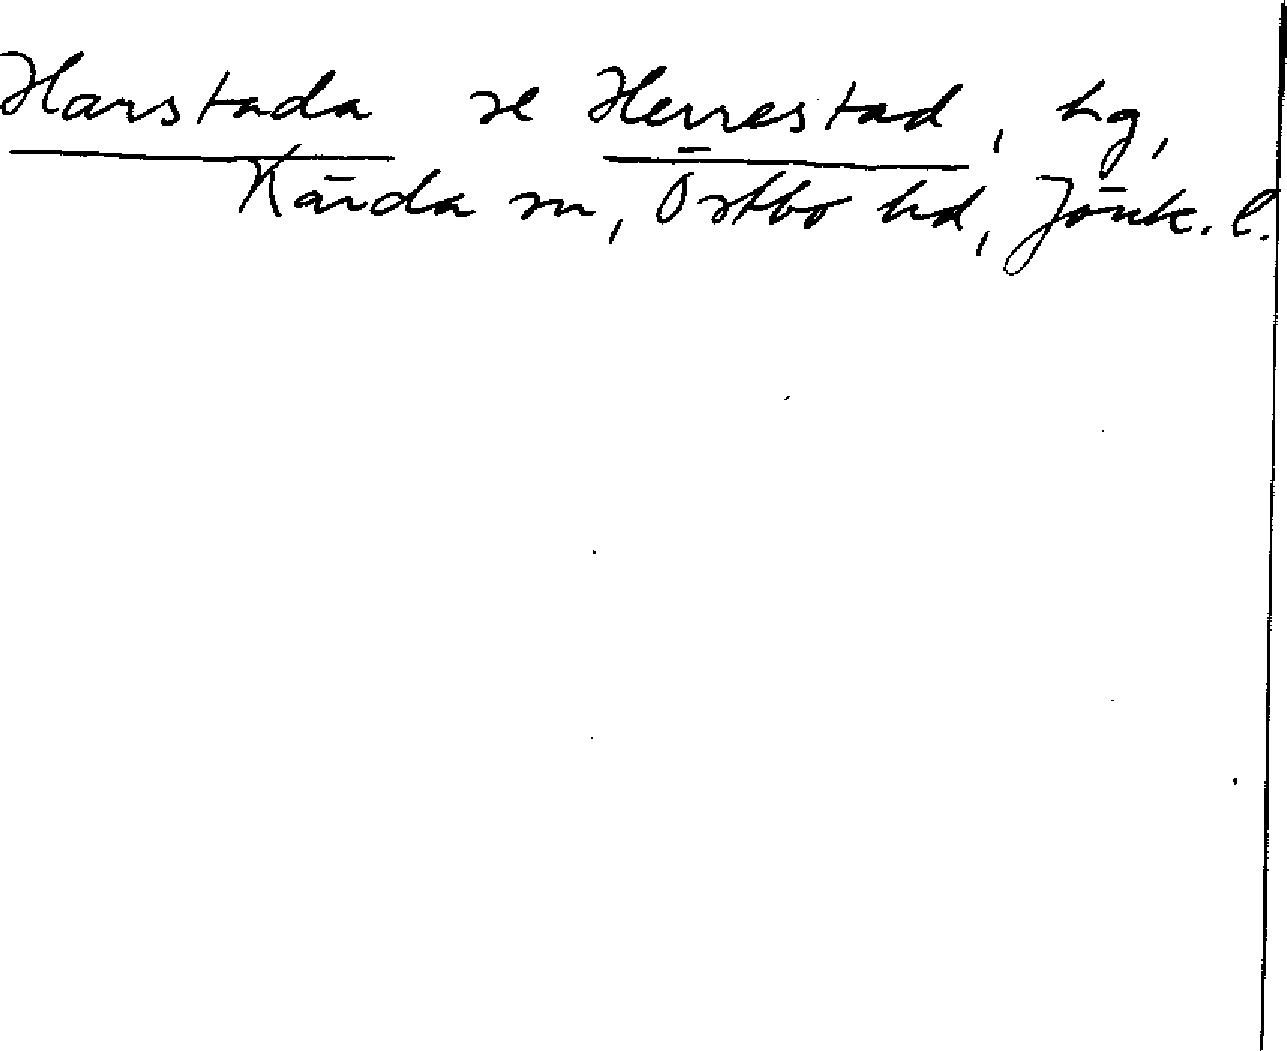 Harstada se Herrestad, hg,
Kärda sn, Östbo hd, Jönk. l.